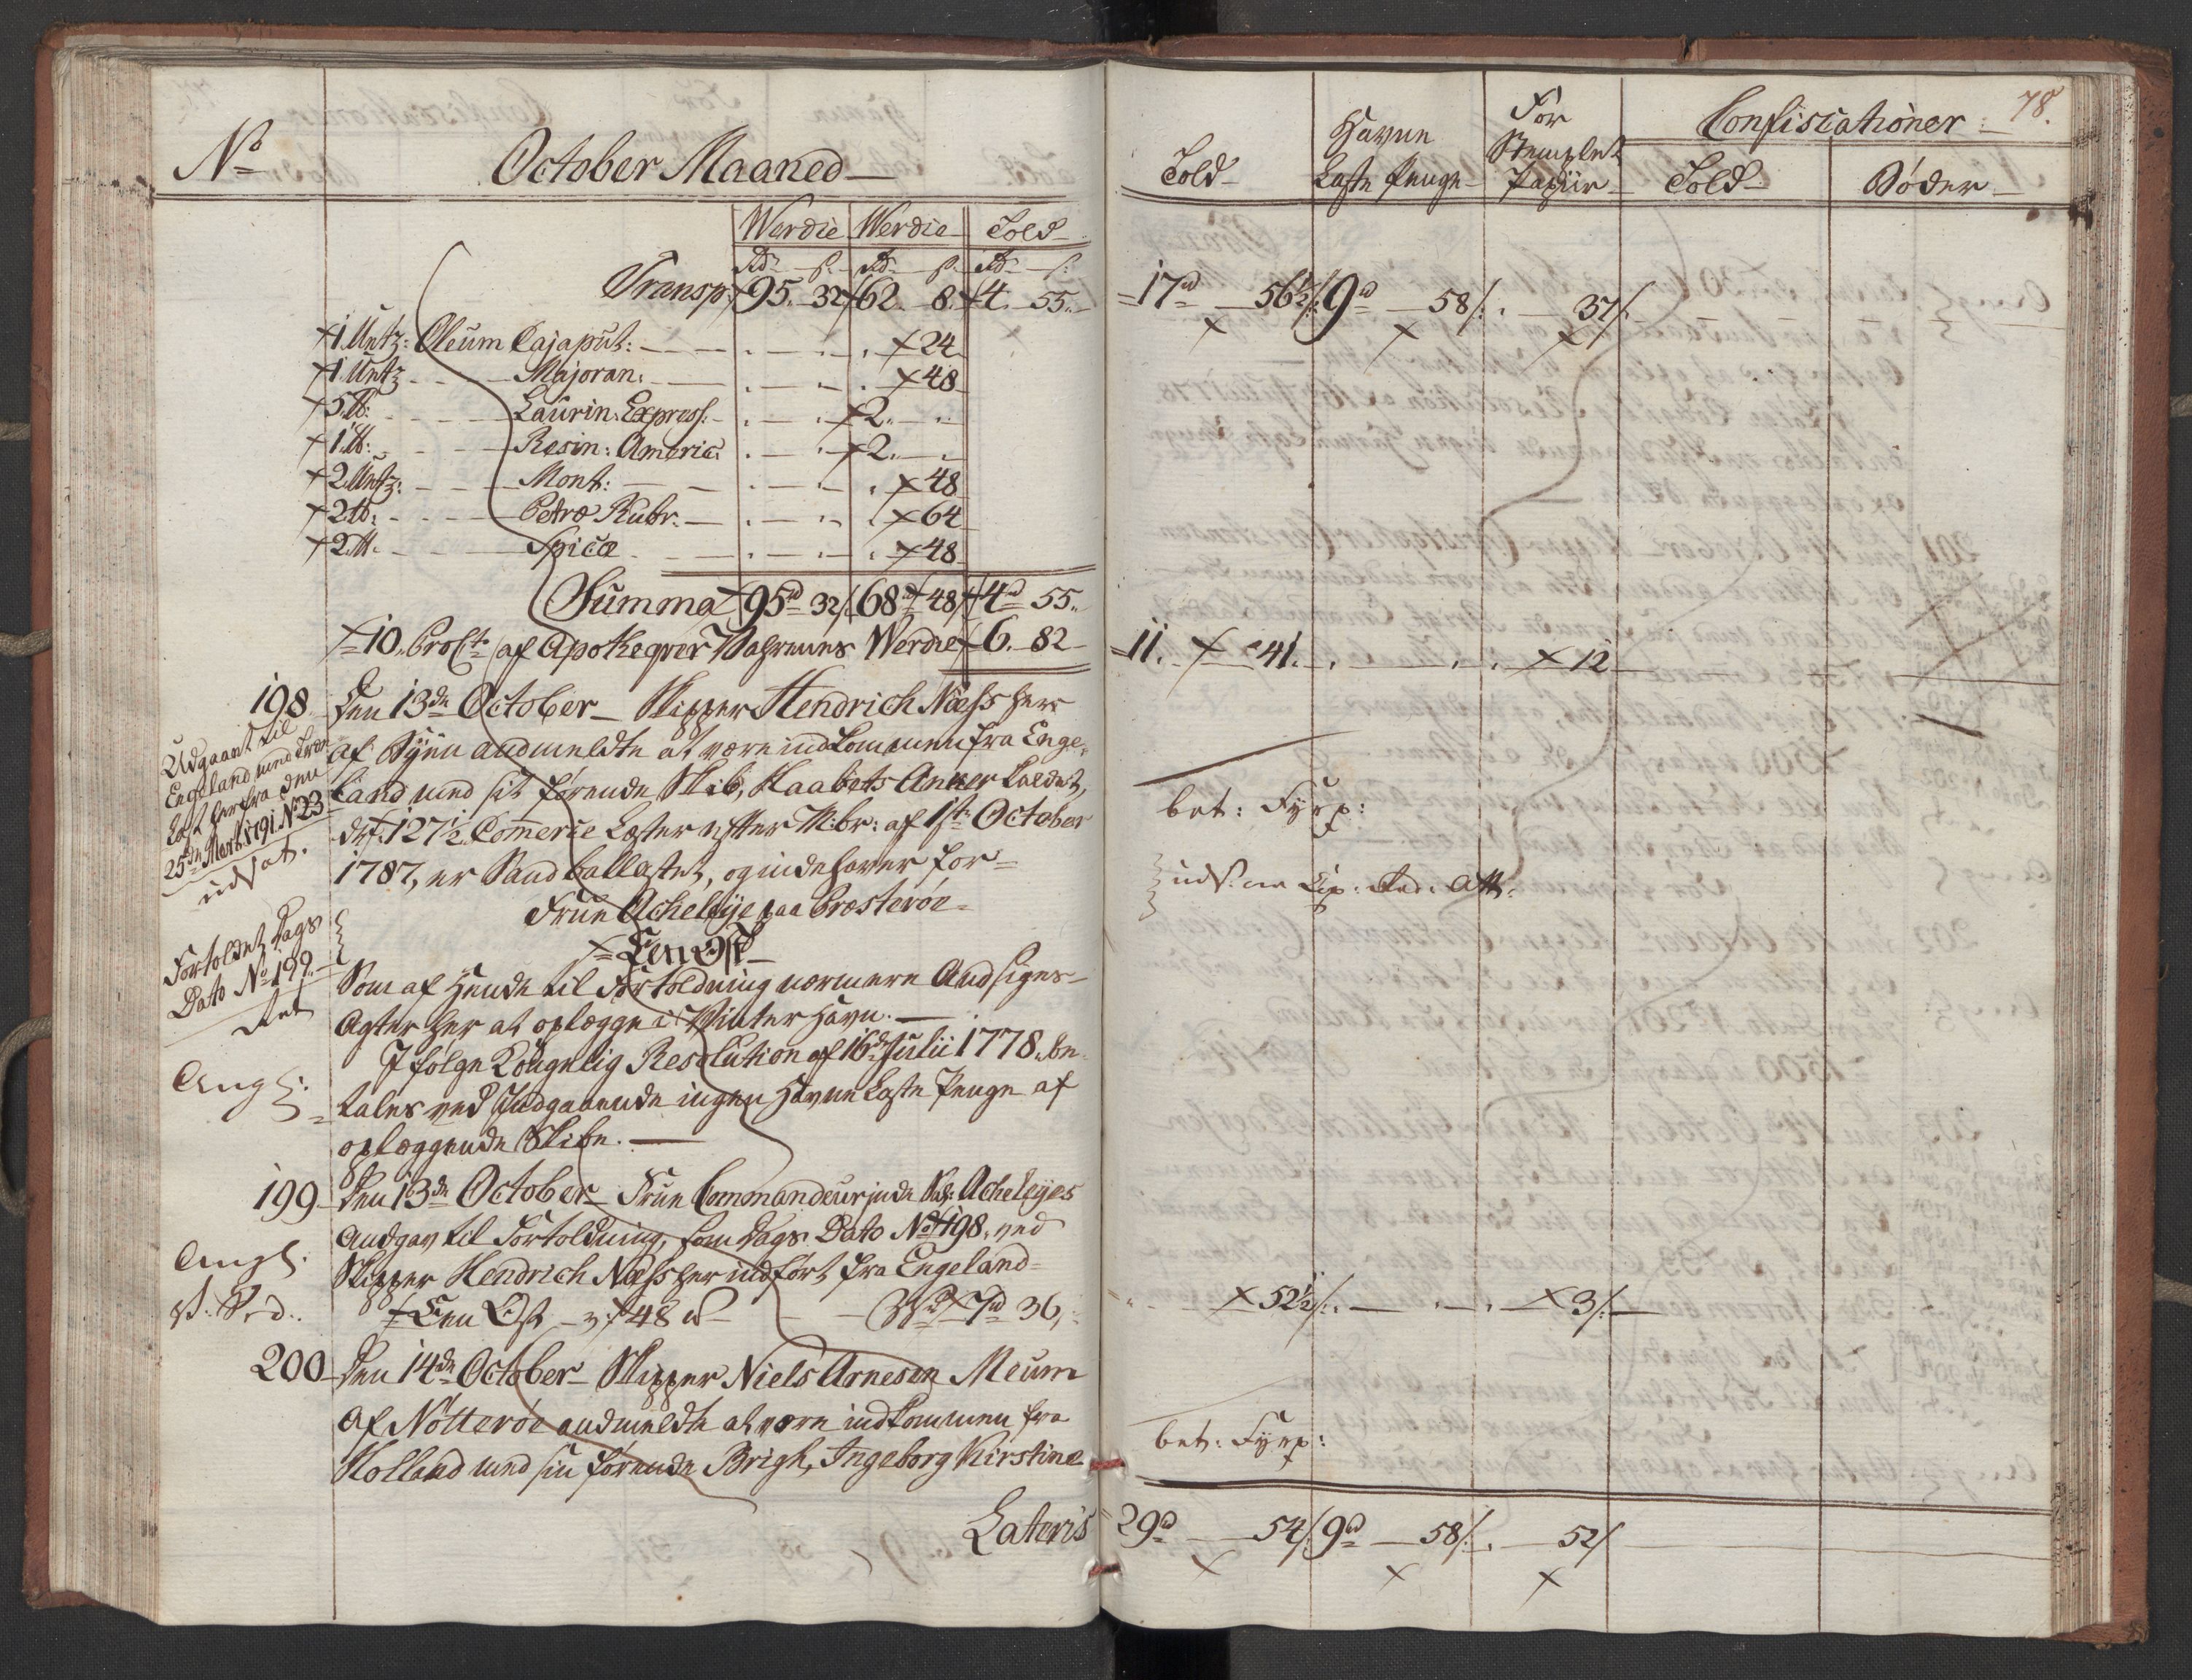 No
October Maaned
Werdie Werdie Told
Rd s Rd s Rd s
Transp: 95. 32 62. 8. 4. 55.
1 Untz: Oleum Cajaput: 24
1 Untz Majoran: 48
5 lb: Laurin: Express: 2.
1 lb: Resin: Americ: 2.
2 Untz: Mont: 48
2 lb: Petræ Rubr. 64
2 lb. Spicæ 48
Summa 95 32 68 48 4 55.
10. ProCto af Apotheqver Werdie 6. 82
198
Den 13de October Skipper Hendrich Næss her
af Byen andmeldte at være indkommen fra Enge-
land med sit førende Skib, Haabets Anker kaldet,
dr: 127 1/2 Commerce Læster efter M:br: af 1ste October
1787, er Sandballastet, og indehaver for
Frue Acheleye paa Presterøe
Een Ost
Som af Hende til Fortoldning nærmere Andsiges
Agter her at oplegge i Winter Havn.
Ifølge Kongelig Resolution af 16de Julii 1778. be-
tales ved Indgaaende ingen Havne Laste Penge af
oplæggende Skibe.
Udgaaet til
Engeland med Træe
Last herfra den
25de Marti 1791 No 23
udsat.
Fortoldet Dags
Dato No 199.
Angl:
199
Den 13de October Frue Commandeurinde Acheleyes
Andgav til Fortoldning, som Dags Dato No 198. ved
Skipper Hendrich Næss her indført fra Engeland
Een Ost 48 7 36,
Angl:
200
Den 14de October Skipper Niels Arnesen Meum
af Nøtterøe andmeldte at være indkommen fra
Holland med sin førende Brigh, Ingeborg Kirstine
Lateris
78.
Told
Havne
Laste Penge
For
Stemplet
Papiir
Confiscationer
Told Bøder
17 56 1/2 9 58 37
11. 41. 12
bet: Fyrp:
52 1/2 3
bet: Fyrp:
29 54 9 58 52